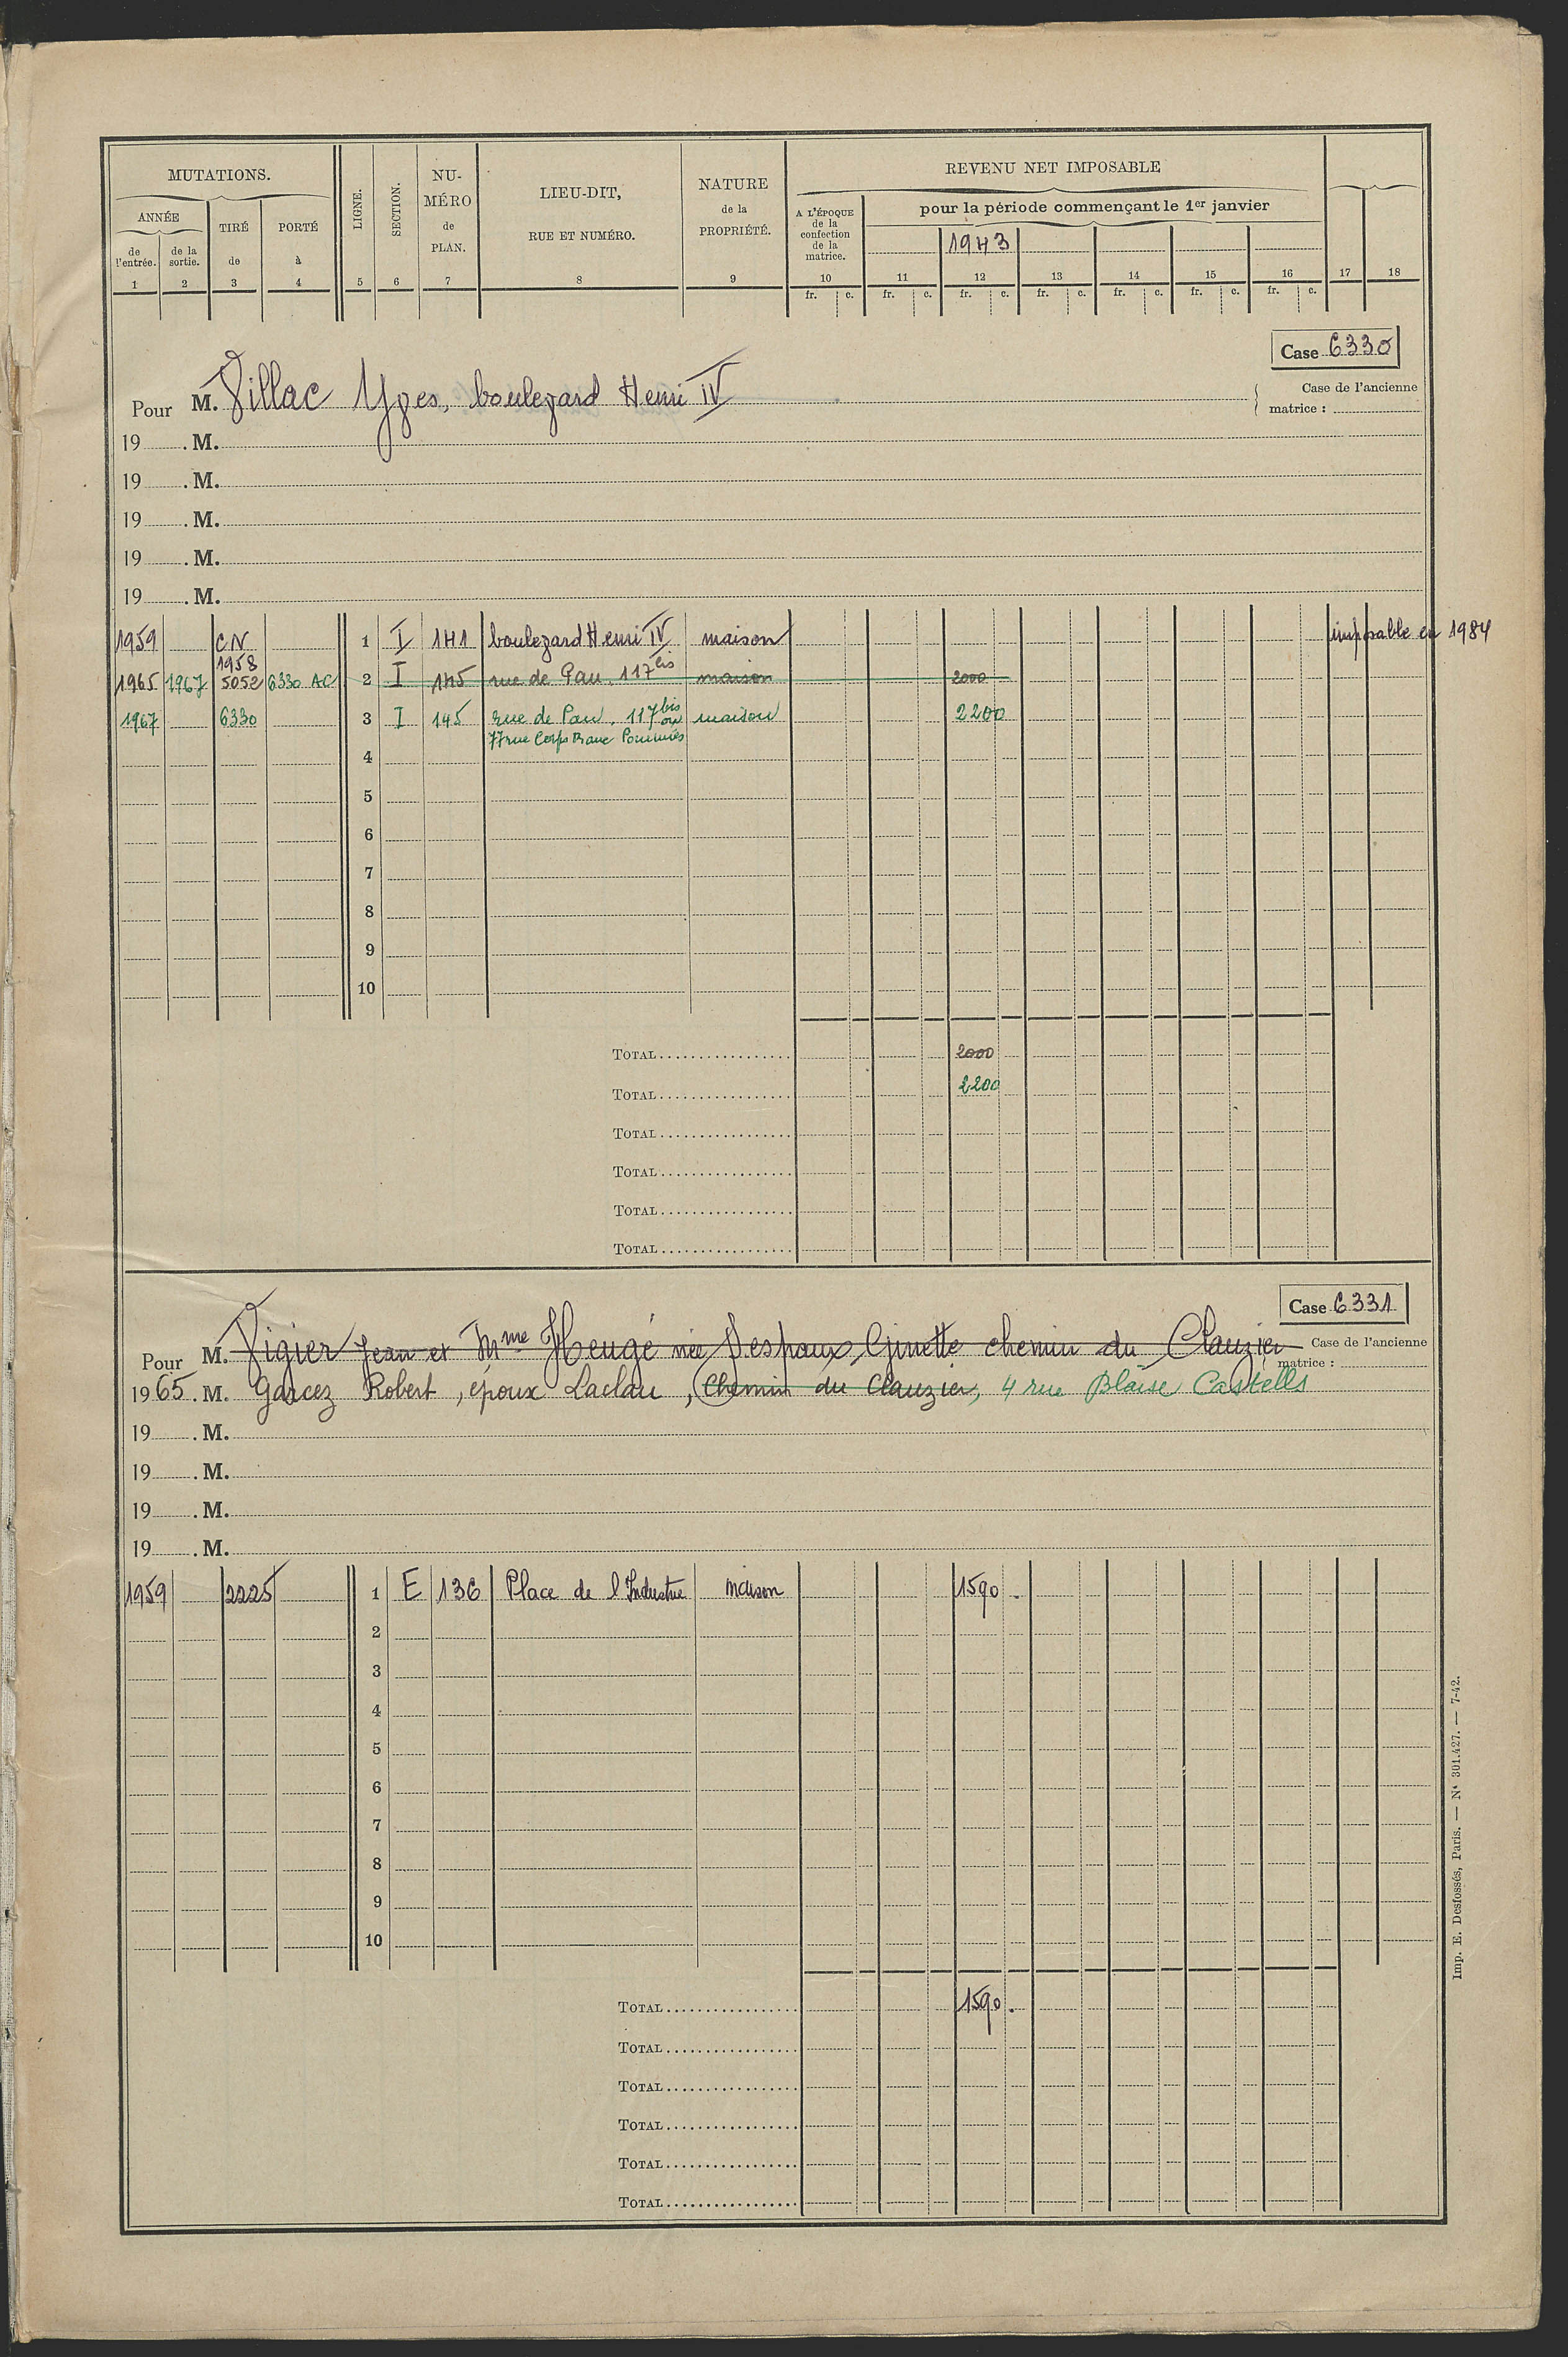 MUTATIONS.
ANNÉE
de l'entrée.
de la sortie.
TIRÉ de
PORTÉ à
LIGNE.
SECTION.
NU-
MÉRO
de
PLAN.
LIEU-DIT,
RUE ET NUMÉRO.
NATURE
de la
PROPRIÉTÉ.
REVENU NET IMPOSABLE
A L'ÉPOQUE
de la
confection
de la
matrice.
pour la période commençant le 1er janvier
1943
1 2 3 4 5 6 7 8 9 10 11 12 13 14 15 16 17 18
fr. c. fr. c. fr. c. fr. c. fr. c. fr. c. fr. c.
Case 6330
Pour M. Villac Yves, boulevard Henri IV
Case de l'ancienne
matrice :
19 . M.
19 . M.
19 . M.
19 . M.
19 . M.
1959 CN 1958 1 I 141 boulevard Henri IV maison imposable en 1984
1965 1967 5052 6330 AC 2 I 145 rue de Pau, 117 bis maison 2000
1967 6330 3 I 145 rue de Pau, 117 bis ou maison 2200
77 rue Corps Franc Pommiès
4
5
6
7
8
9
10
TOTAL 2000
TOTAL 2200
TOTAL
TOTAL
TOTAL
TOTAL
Case 6331
Pour M. Vigier Jean et Mme Heugé née Despaux Ginette chemin du Clauzier
Case de l'ancienne
matrice :
1965. M. Garcez Robert, époux Laclau, Chemin du Clauzier, 4 rue Blaise Castells
19 . M.
19 . M.
19 . M.
19 . M.
1959 2225 1 E 136 Place de l'Industrie maison 1590
2
3
4
5
6
7
8
9
10
TOTAL 1590.
TOTAL
TOTAL
TOTAL
TOTAL
TOTAL
Imp. E. Desfossés, Paris. — Nº 301.427. — 7-42.